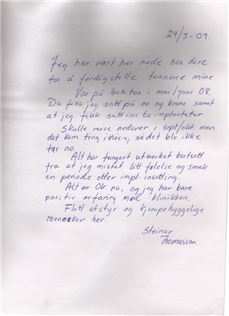 24/3-09.
Jeg har vært her nede hos dere
for å ferdigstille tennene mine
Var på besøk i mai/juni 08.
Da fikk jeg satt på en og krone samt
at jeg fikk satt inn to implantater
Skulle reise nedover i sept/okt. men
det kom ting i veien, så det ble ikke
før nå.
Alt har fungert utmerket bortsett
fra at jeg mistet litt følelse og smak
en periode etter impl. insetting.
Alt er OK nå, og jeg har bare
positiv erfaring med klinikken.
Flott utstyr og kjempehyggelige
mennesker her.
Steinar
Thomassen.